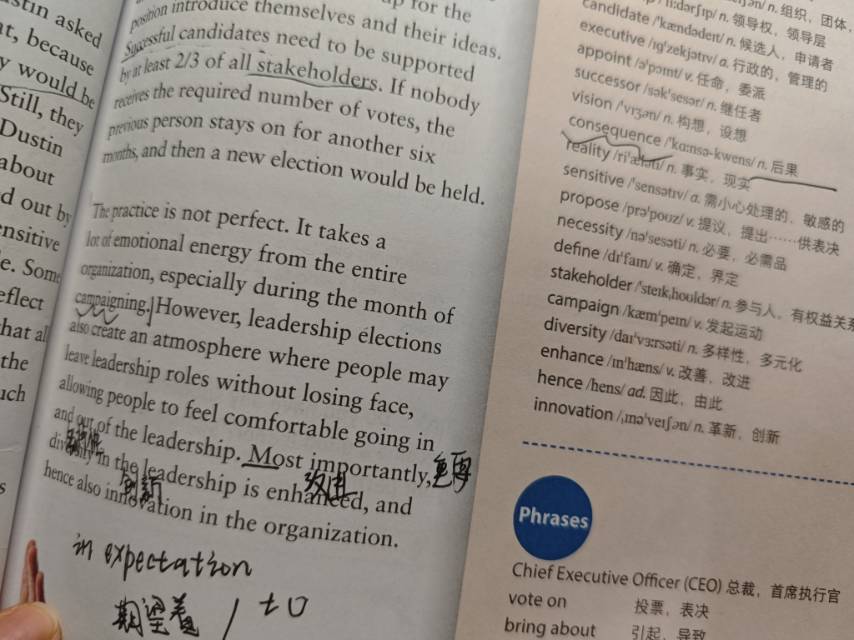 stin asked
at, because
y would be
Still, they
Dustin
about
d out by
ensitive
e. Some
eflect
that al
the
uch
s
up for the
position introduce themselves and their ideas.
Successful candidates need to be supported
by at least 2/3 of all stakeholders. If nobody
receives the required number of votes, the
previous person stays on for another six
months, and then a new election would be held.
The practice is not perfect. It takes a
lot of emotional energy from the entire
organization, especially during the month of
campaigning. However, leadership elections
also create an atmosphere where people may
leave leadership roles without losing face,
allowing people to feel comfortable going in
and out of the leadership. Most importantly,
diversity in the leadership is enhanced, and
hence also innovation in the organization.
创新
改进
in expectation
期望着 / to
n. 组织，团体，
n. 领导权，领导层
candidate /'kændədeɪt/ n. 候选人，申请者
executive /ɪɡ'zekjətɪv/ a. 行政的，管理的
appoint /ə'pɔɪnt/ v. 任命，委派
successor /sək'sesər/ n. 继任者
vision /'vɪʒən/ n. 构想，设想
consequence /'kɑːnsə-kwens/ n. 后果
reality /ri'æləti/ n. 事实，现实
sensitive /'sensətɪv/ a. 需小心处理的，敏感的
propose /prə'poʊz/ v. 提议，提出……供表决
necessity /nə'sesəti/ n. 必要，必需品
define /dɪ'faɪn/ v. 确定，界定
stakeholder /'steɪkˌhoʊldər/ n. 参与人，有权益关系
campaign /kæm'peɪn/ v. 发起运动
diversity /daɪ'vɜːrsəti/ n. 多样性，多元化
enhance /ɪn'hæns/ v. 改善，改进
hence /hens/ ad. 因此，由此
innovation /ˌɪnə'veɪʃən/ n. 革新，创新
Phrases
Chief Executive Officer (CEO) 总裁，首席执行官
vote on 投票，表决
bring about 引起，导致